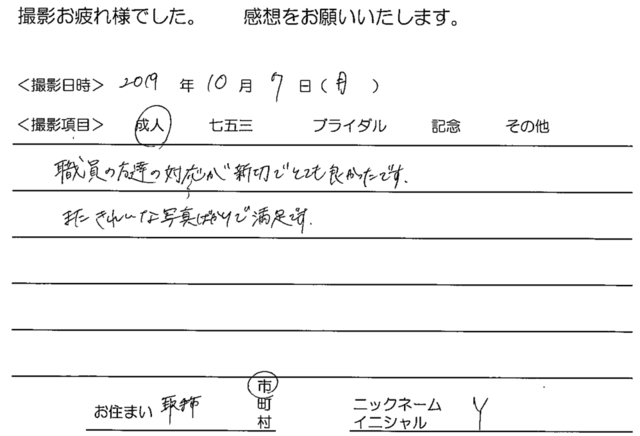 撮影お疲れ様でした。 感想をお願いいたします。
<撮影日時> 2019 年 10 月 7 日(月)
<撮影項目> 成人 七五三 ブライダル 記念 その他
職員の友達の対応が新切でとても良かったです.
またきれいな写真ばかりで満足です.
お住まい 取手 市 町 村 ニックネーム イニシャル Y